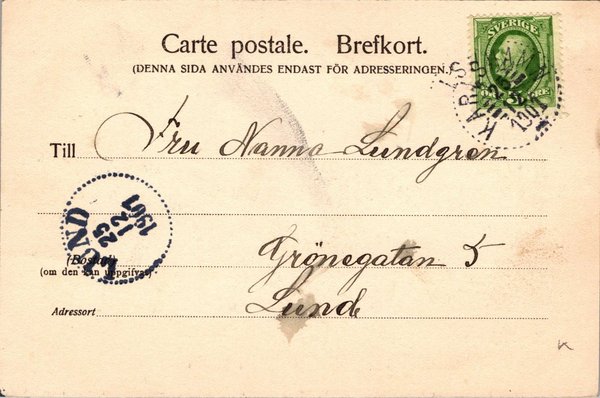 SVERIGE
Carte postale. Brefkort.
(DENNA SIDA ANVÄNDES ENDAST FÖR ADRESSERINGEN.)
Till Fru Nanna Lundgren
LUND
25
12
1901
(Bostad)
(om den kan uppgifvas)
Grönegatan 5
Lund
Adressort
K